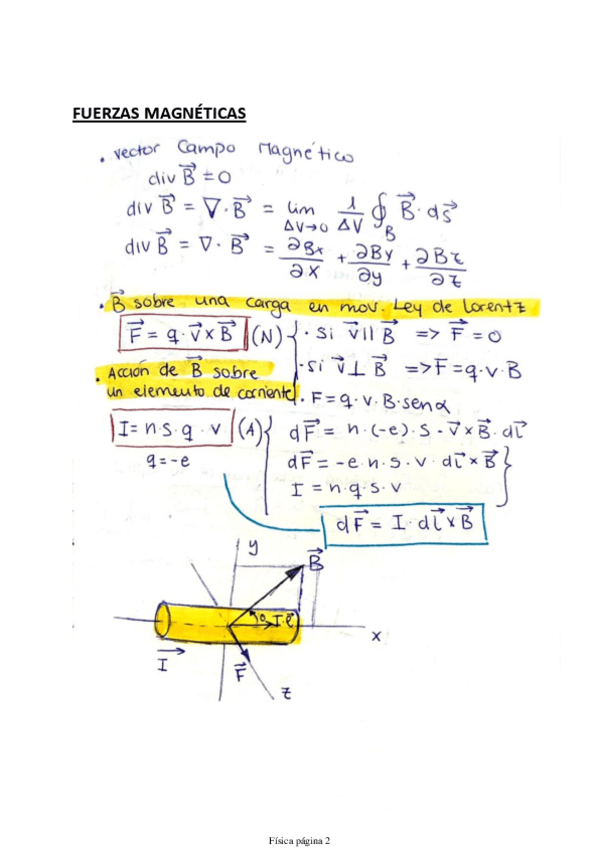 FUERZAS MAGNÉTICAS
• vector Campo Magnético
div B⃗ = 0
div B⃗ = ∇·B⃗ = lim ΔV→0 1/ΔV ∮_B B⃗·ds⃗
div B⃗ = ∇·B⃗ = ∂Bx/∂x + ∂By/∂y + ∂Bz/∂z
• B⃗ sobre una carga en mov. Ley de Lorentz
F⃗ = q·v⃗×B⃗ (N) { · Si v⃗ || B⃗ => F⃗ = 0
· Si v⃗ ⊥ B⃗ => F = q·v·B
· F = q·v·B·senα
• Acción de B⃗ sobre
un elemento de corriente
I = n·s·q·v (A) { dF⃗ = n·(-e)·S·v⃗×B⃗·dl⃗
q = -e
dF⃗ = -e·n·s·v·dl⃗×B⃗ }
I = n·q·s·v
dF⃗ = I·dl⃗×B⃗
y
B⃗
θ
I·e⃗
x
I
F⃗
z
Física página 2